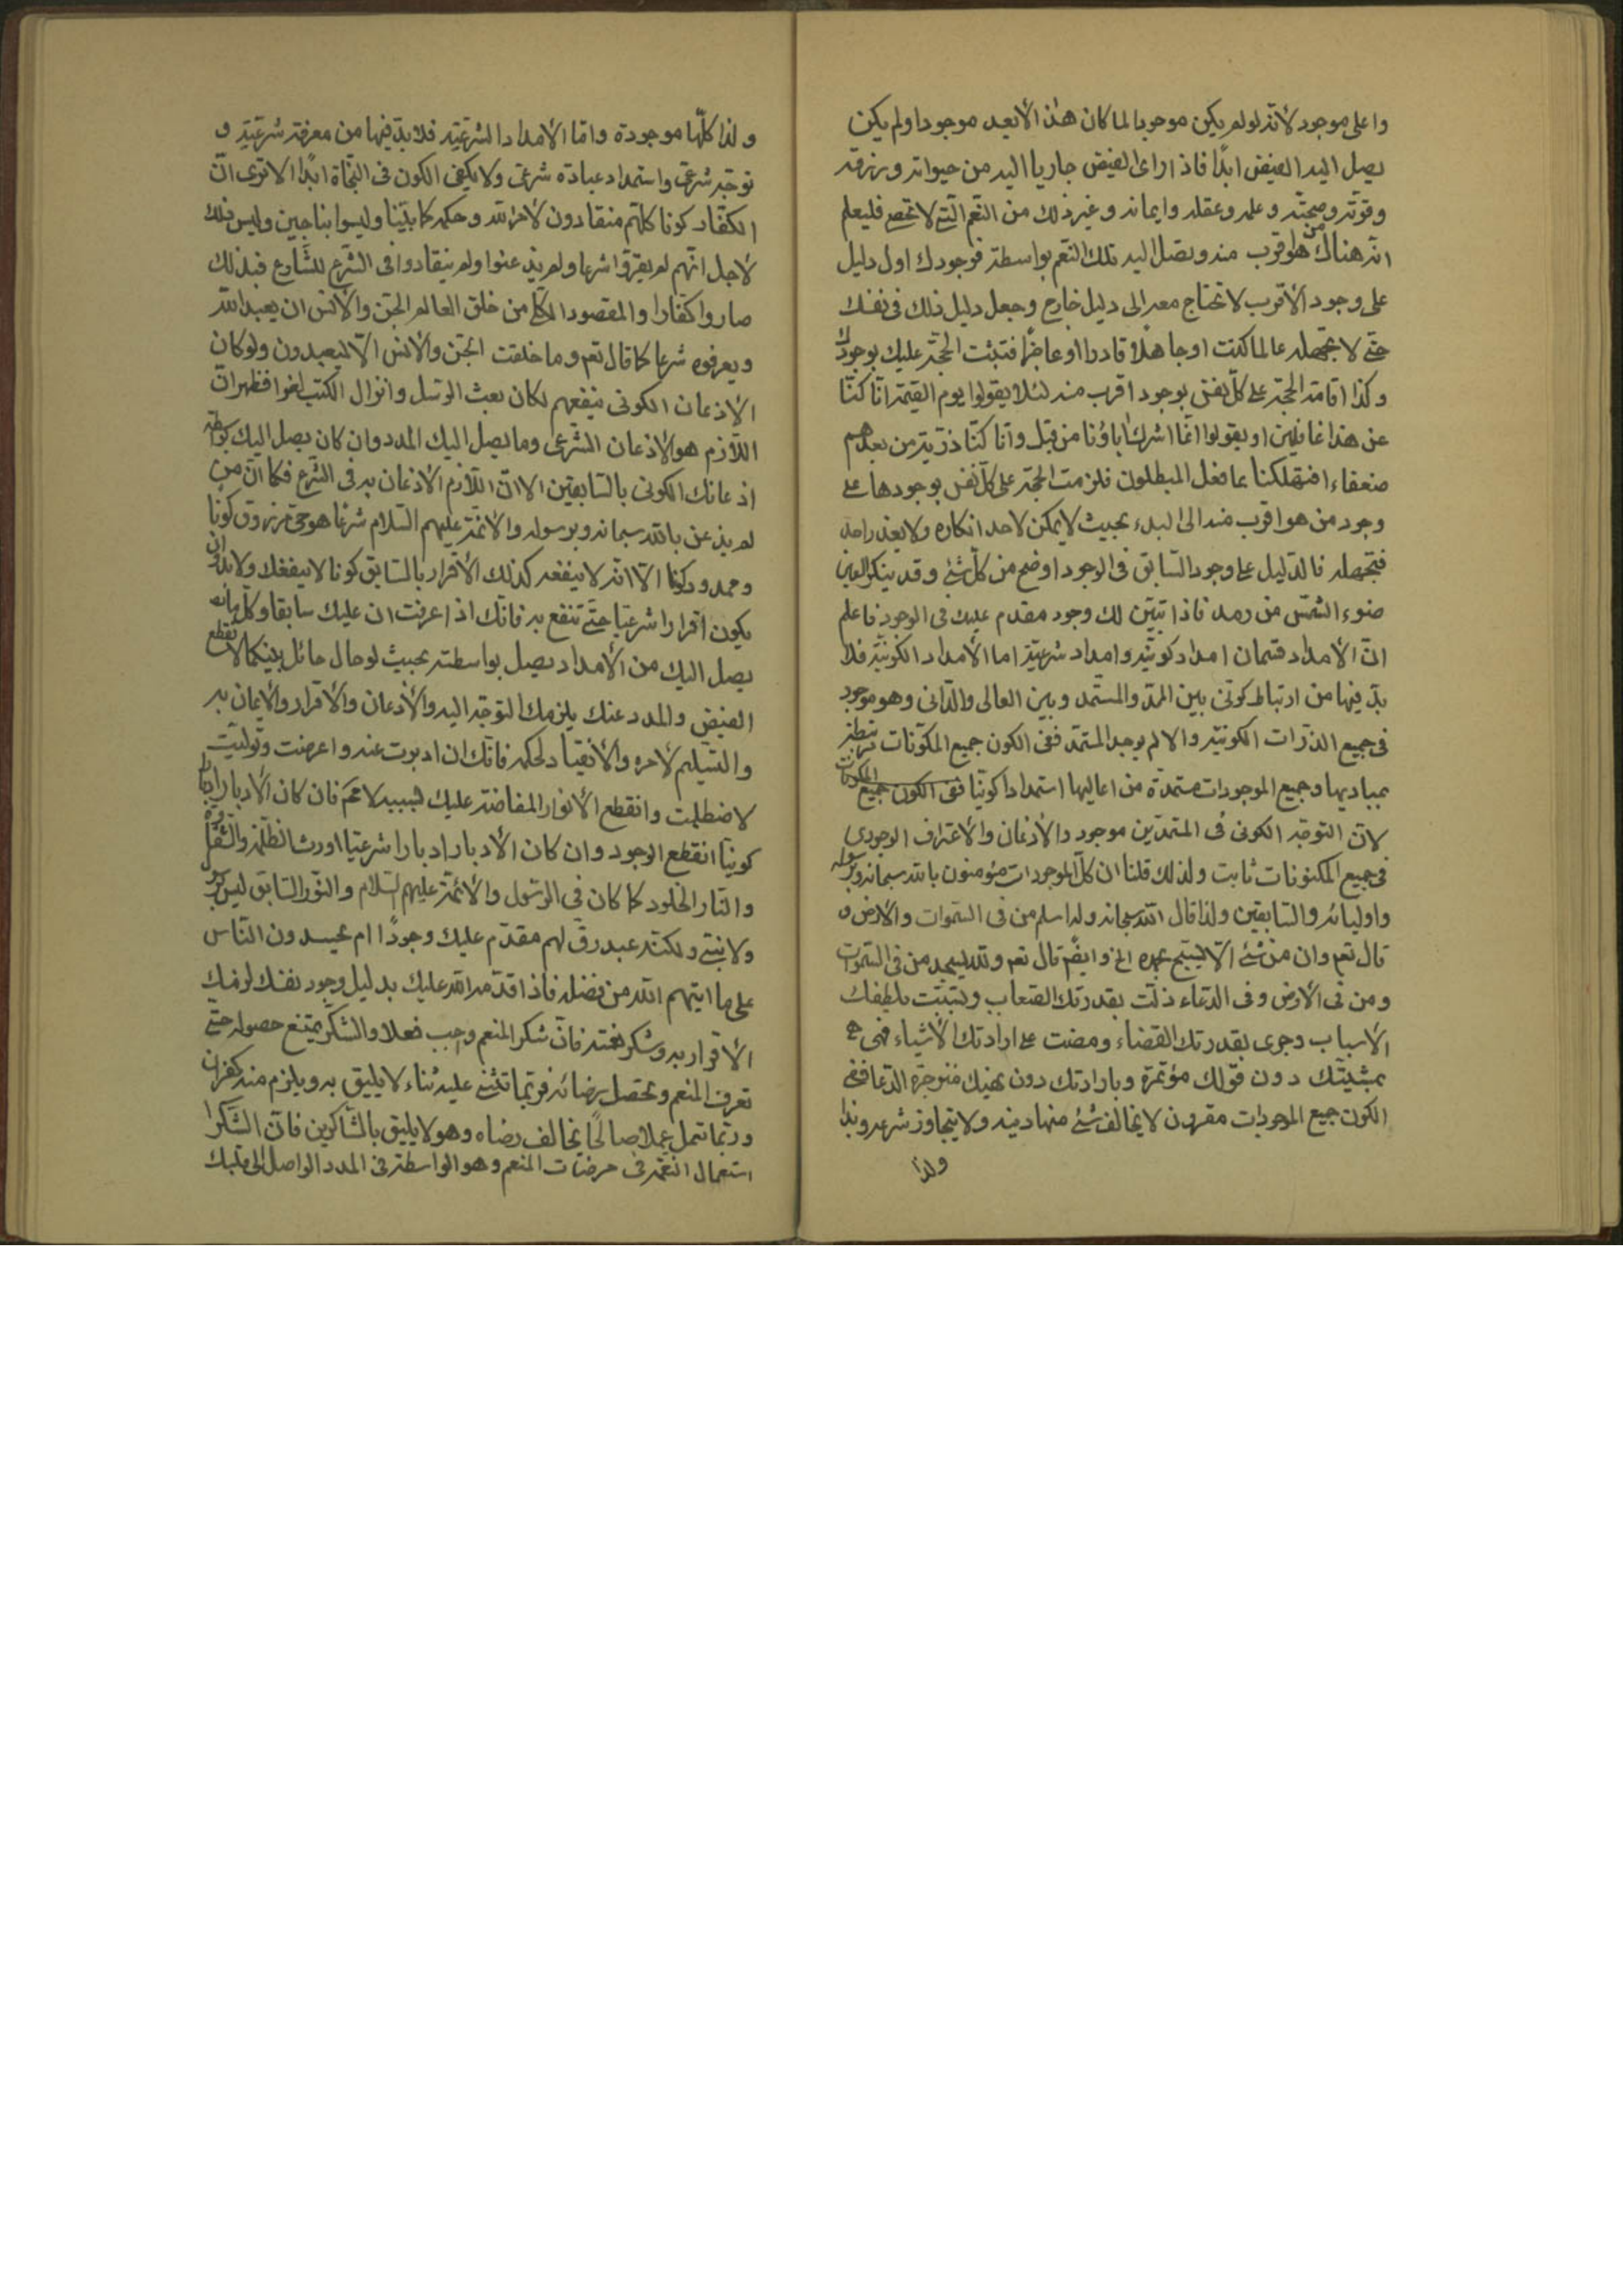 واعلى موجود لأنه لو لم يكن موجودا لما كان هذا الأبعد موجودا ولم يكن
يصل اليه الفيض ابدًا فاذا رأى الفيض جاريا اليه من حيوته ورزقه
وقوته وصحته وعلمه وعقله وايمانه وغير ذلك من النعم التى لا تحصى فليعلم
انه هناك من هو اقرب منه ويصل اليه تلك النعم بواسطته فوجودك اول دليل
على وجود الأقرب لا تحتاج معه الى دليل خارج وجعل دليل ذلك فى نفسك
حتى لا تجهله عالما كنت او جاهلا قادرا او عاجزا فتثبت الحجة عليك بوجودك
وكذا اقامة الحجة على كل نفس بوجود اقرب منه لئلا يقولوا يوم القيمة انا كنا
عن هذا غافلين او يقولوا انما اشرك اباؤنا من قبل وانا كنا ذرية من بعدهم
ضعفاء افتهلكنا بما فعل المبطلون فلزمت الحجة على كل نفس بوجودها على
وجود من هو اقرب منه الى المبدء بحيث لا يمكن لاحد انكاره ولا يعذر احد
فتجهله فالدليل على وجود السابق فى الوجود اوضح من كل شئ وقد ينكر العين
ضوء الشمس من رمد فاذا تبين لك وجود مقدم عليك فى الوجود فاعلم
ان الأمداد قسمان امداد كونية وامداد شرعية اما الأمداد الكونية فلا
بد فيها من ارتباط كونى بين الممد والمستمد وبين العالى والدانى وهو موجود
فى جميع الذرات الكونية والا لم يوجد المستمد ففى الكون جميع المكونات مرتبطة
بمباديها وجميع الموجودات مستمدة من اعاليها استمدادا كونيا ففى الكون جميع المكونات
لان التوجه الكونى فى المستمدين موجود والأذعان والأعتراف الوجودى
فى جميع المكونات ثابت ولذلك قلنا ان كل الموجودات مؤمنون بالله سبحانه وبرسوله
واوليائه والسابقين ولذا قال الله سبحانه وله اسلم من فى السموات والارض و
قال تعم وان من شئ الا يسبح بحمده الخ وايضًا قال تعم ولله يسجد من فى السموات
ومن فى الأرض وفى الدعاء ذلت بقدرتك الصعاب وتسببت بلطفك
الأسباب وجرى بقدرتك القضاء ومضت على ارادتك الأشياء فهى
بمشيتك دون قولك مؤتمرة وبارادتك دون نهيك منزجرة الدعا ففى
الكون جميع الموجودات مقرون لا يخالف شئ منها دينه ولا يتجاوز شرعه ولذا
ولذا
ولذا كلها موجودة واما الأمداد الشرعية فلا بد فيها من معرفة شرعية و
توجه شرعى واستمداد عبادة شرعى ولا يكفى الكون فى النجاة ابدًا الا ترى ان
الكفار كونا كلهم منقادون لأمر الله وحكمه كما بينا وليسوا بناجين وليس ذلك
لأجل انهم لم يقروا شرعا ولم يذعنوا ولم ينقادوا فى الشرع للشارع فبذلك
صاروا كفارا والمقصود الكلى من خلق العالم الجن والأنس ان يعبد الله
ويعرفوه شرعا كما قال تعم وما خلقت الجن والأنس الا ليعبدون ولو كان
الأذعان الكونى ينفعهم لكان بعث الرسل وانزال الكتب لغوا فظهر ان
اللازم هو الأذعان الشرعى وما يصل اليك المدد وان كان يصل اليك بواسطة
اذعانك الكونى بالسابقين الا ان اللازم الأذعان به فى الشرع فكما ان من
لم يذعن بالله سبحانه وبرسوله والأئمة عليهم السلام شرعا هو حى مرزوق كونا
وممدود كونا الا انه لا ينفعه كذلك الأقرار بالسابق كونا لا ينفعك ولا بد وان
يكون اقرارا شرعيا حتى تنفع به فانك اذا عرفت ان عليك سابقا وكل ما
يصل اليك من الأمداد يصل بواسطته بحيث لو حال حائل بينكما لانقطع
الفيض والمدد عنك يلزمك التوجه اليه والأذعان والأقرار والأيمان به
والتسليم لأمره والأنقياد لحكمه فانك ان ادبرت عنه واعرضت وتوليت
لاضطلمت وانقطع الأنوار المفاضة عليك بسببه لا محة فان كان الأدبار ادبارا
كونيا انقطع الوجود وان كان الأدبار ادبارا شرعيا اورث الظلمة والشقاوة
والنار الخلود كما كان فى الرسول والأئمة عليهم السلام والنور السابق ليس برسول
ولا نبى ولكنه عبد رق لهم مقدم عليك وجودًا ام يحسدون الناس
على ما اتيهم الله من فضله فاذا قدمه الله عليك بدليل وجود نفسك لزمك
الأقرار به وشكر نعمته فان شكر المنعم واجب فعلا والشكر يمتنع حصوله حتى
تعرف المنعم وتحصل رضائه فربما تثنى عليه ثناء لا يليق به ويلزم منه كفران
وربما تعمل عملا صالحًا يخالف رضاه وهو لا يليق بالشاكرين فان الشكر
استعمال النعمة فى مرضات المنعم وهو الواسطة فى المدد الواصل الى قلبك